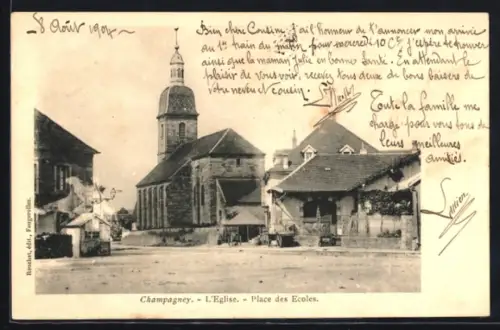 8 Août 1904
Bien chère Cousine, j'ai l'honneur de t'annoncer mon arrivée
au 1er train du matin pour mercredi 10 Ct j'espère te trouver
ainsi que la maman Julie en bonne santé. En attendant le
plaisir de vous voir, recevez tous deux de bons baisers de
votre neveu et cousin.
Toute la famille me
charge pour vous tous de
leurs meilleures
amitiés.
Champagney. - L'Eglise. - Place des Ecoles.
édit., Fougerolles.